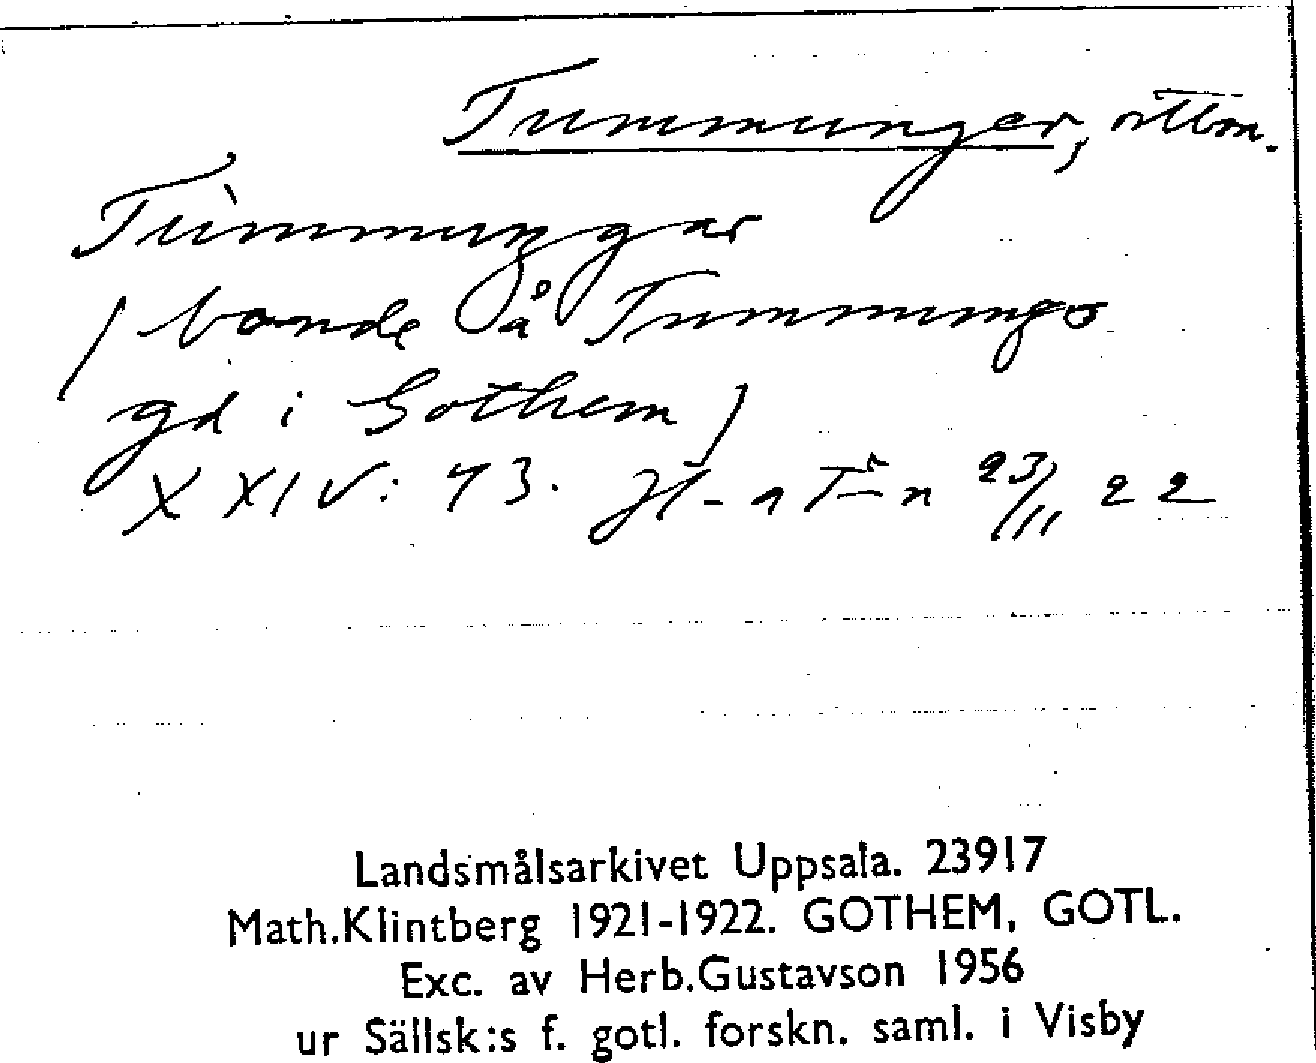 Tummunger, 
Tùmmuŋgar
(bonde å Tummungs
gd i Gothem)
XXIV: 43. 23/11 22
Landsmålsarkivet Uppsala. 23917
Math.Klintberg 1921-1922. GOTHEM, GOTL.
Exc. av Herb.Gustavson 1956
ur Sällsk:s f. gotl. forskn. saml. i Visby